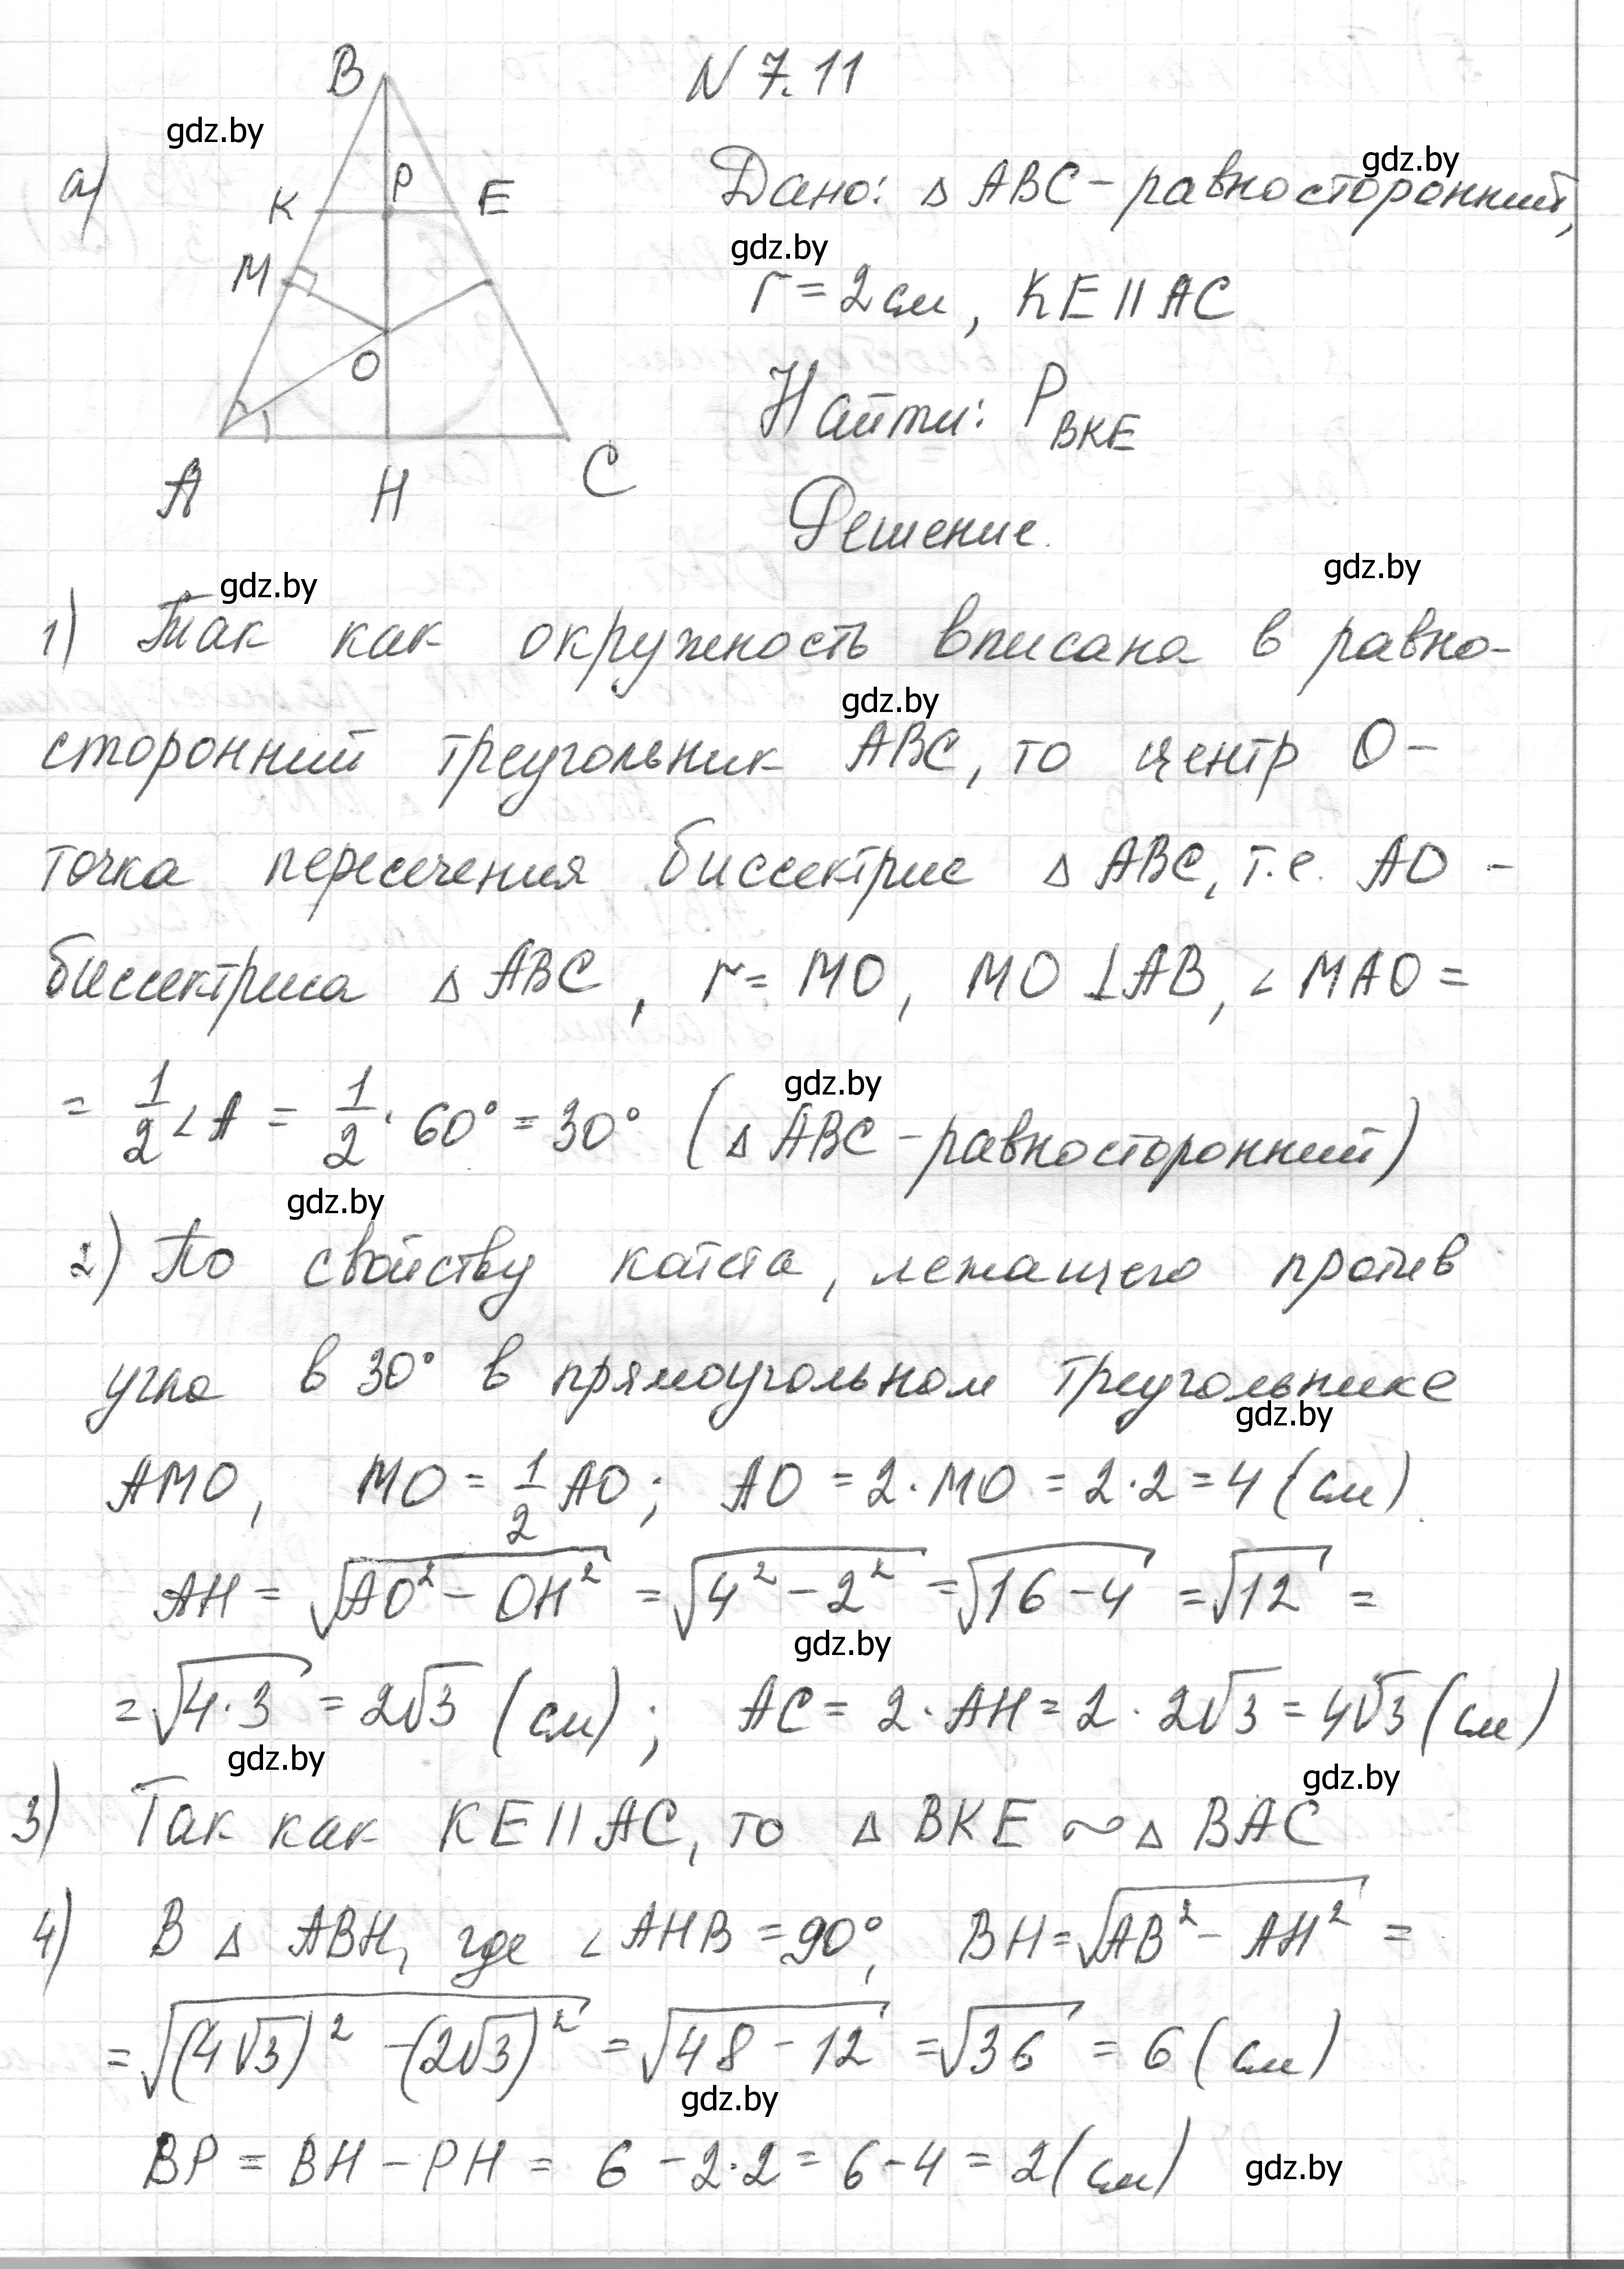 N 7.11
B
gdz.by
gdz.by
а)
P
K
E
Дано: Δ ABC - равносторонний,
gdz.by
M
r = 2 см, KE || AC
O
Найти: P_BKE
A
H
C
Решение.
gdz.by
gdz.by
1) Так как окружность вписана в равно-
gdz.by
сторонний треугольник ABC, то центр O -
точка пересечения биссектрис Δ ABC, т.е. AO -
биссектриса Δ ABC, r = MO, MO ⊥ AB, ∠ MAO =
= 1/2 ∠ A = 1/2 · 60° = 30° (Δ ABC - равносторонний)
gdz.by
gdz.by
2) По свойству катета, лежащего против
угла в 30° в прямоугольном треугольнике
gdz.by
AMO, MO = 1/2 AO; AO = 2 · MO = 2 · 2 = 4 (см).
AH = √(AO² - OH²) = √(4² - 2²) = √(16 - 4) = √12 =
gdz.by
= √(4 · 3) = 2√3 (см); AC = 2 · AH = 2 · 2√3 = 4√3 (см)
gdz.by
gdz.by
3) Так как KE || AC, то Δ BKE ~ Δ BAC
4) В Δ ABH, где ∠ AHB = 90°, BH = √(AB² - AH²) =
= √((4√3)² - (2√3)²) = √(48 - 12) = √36 = 6 (см)
gdz.by
BP = BH - PH = 6 - 2·2 = 6 - 4 = 2 (см)
gdz.by